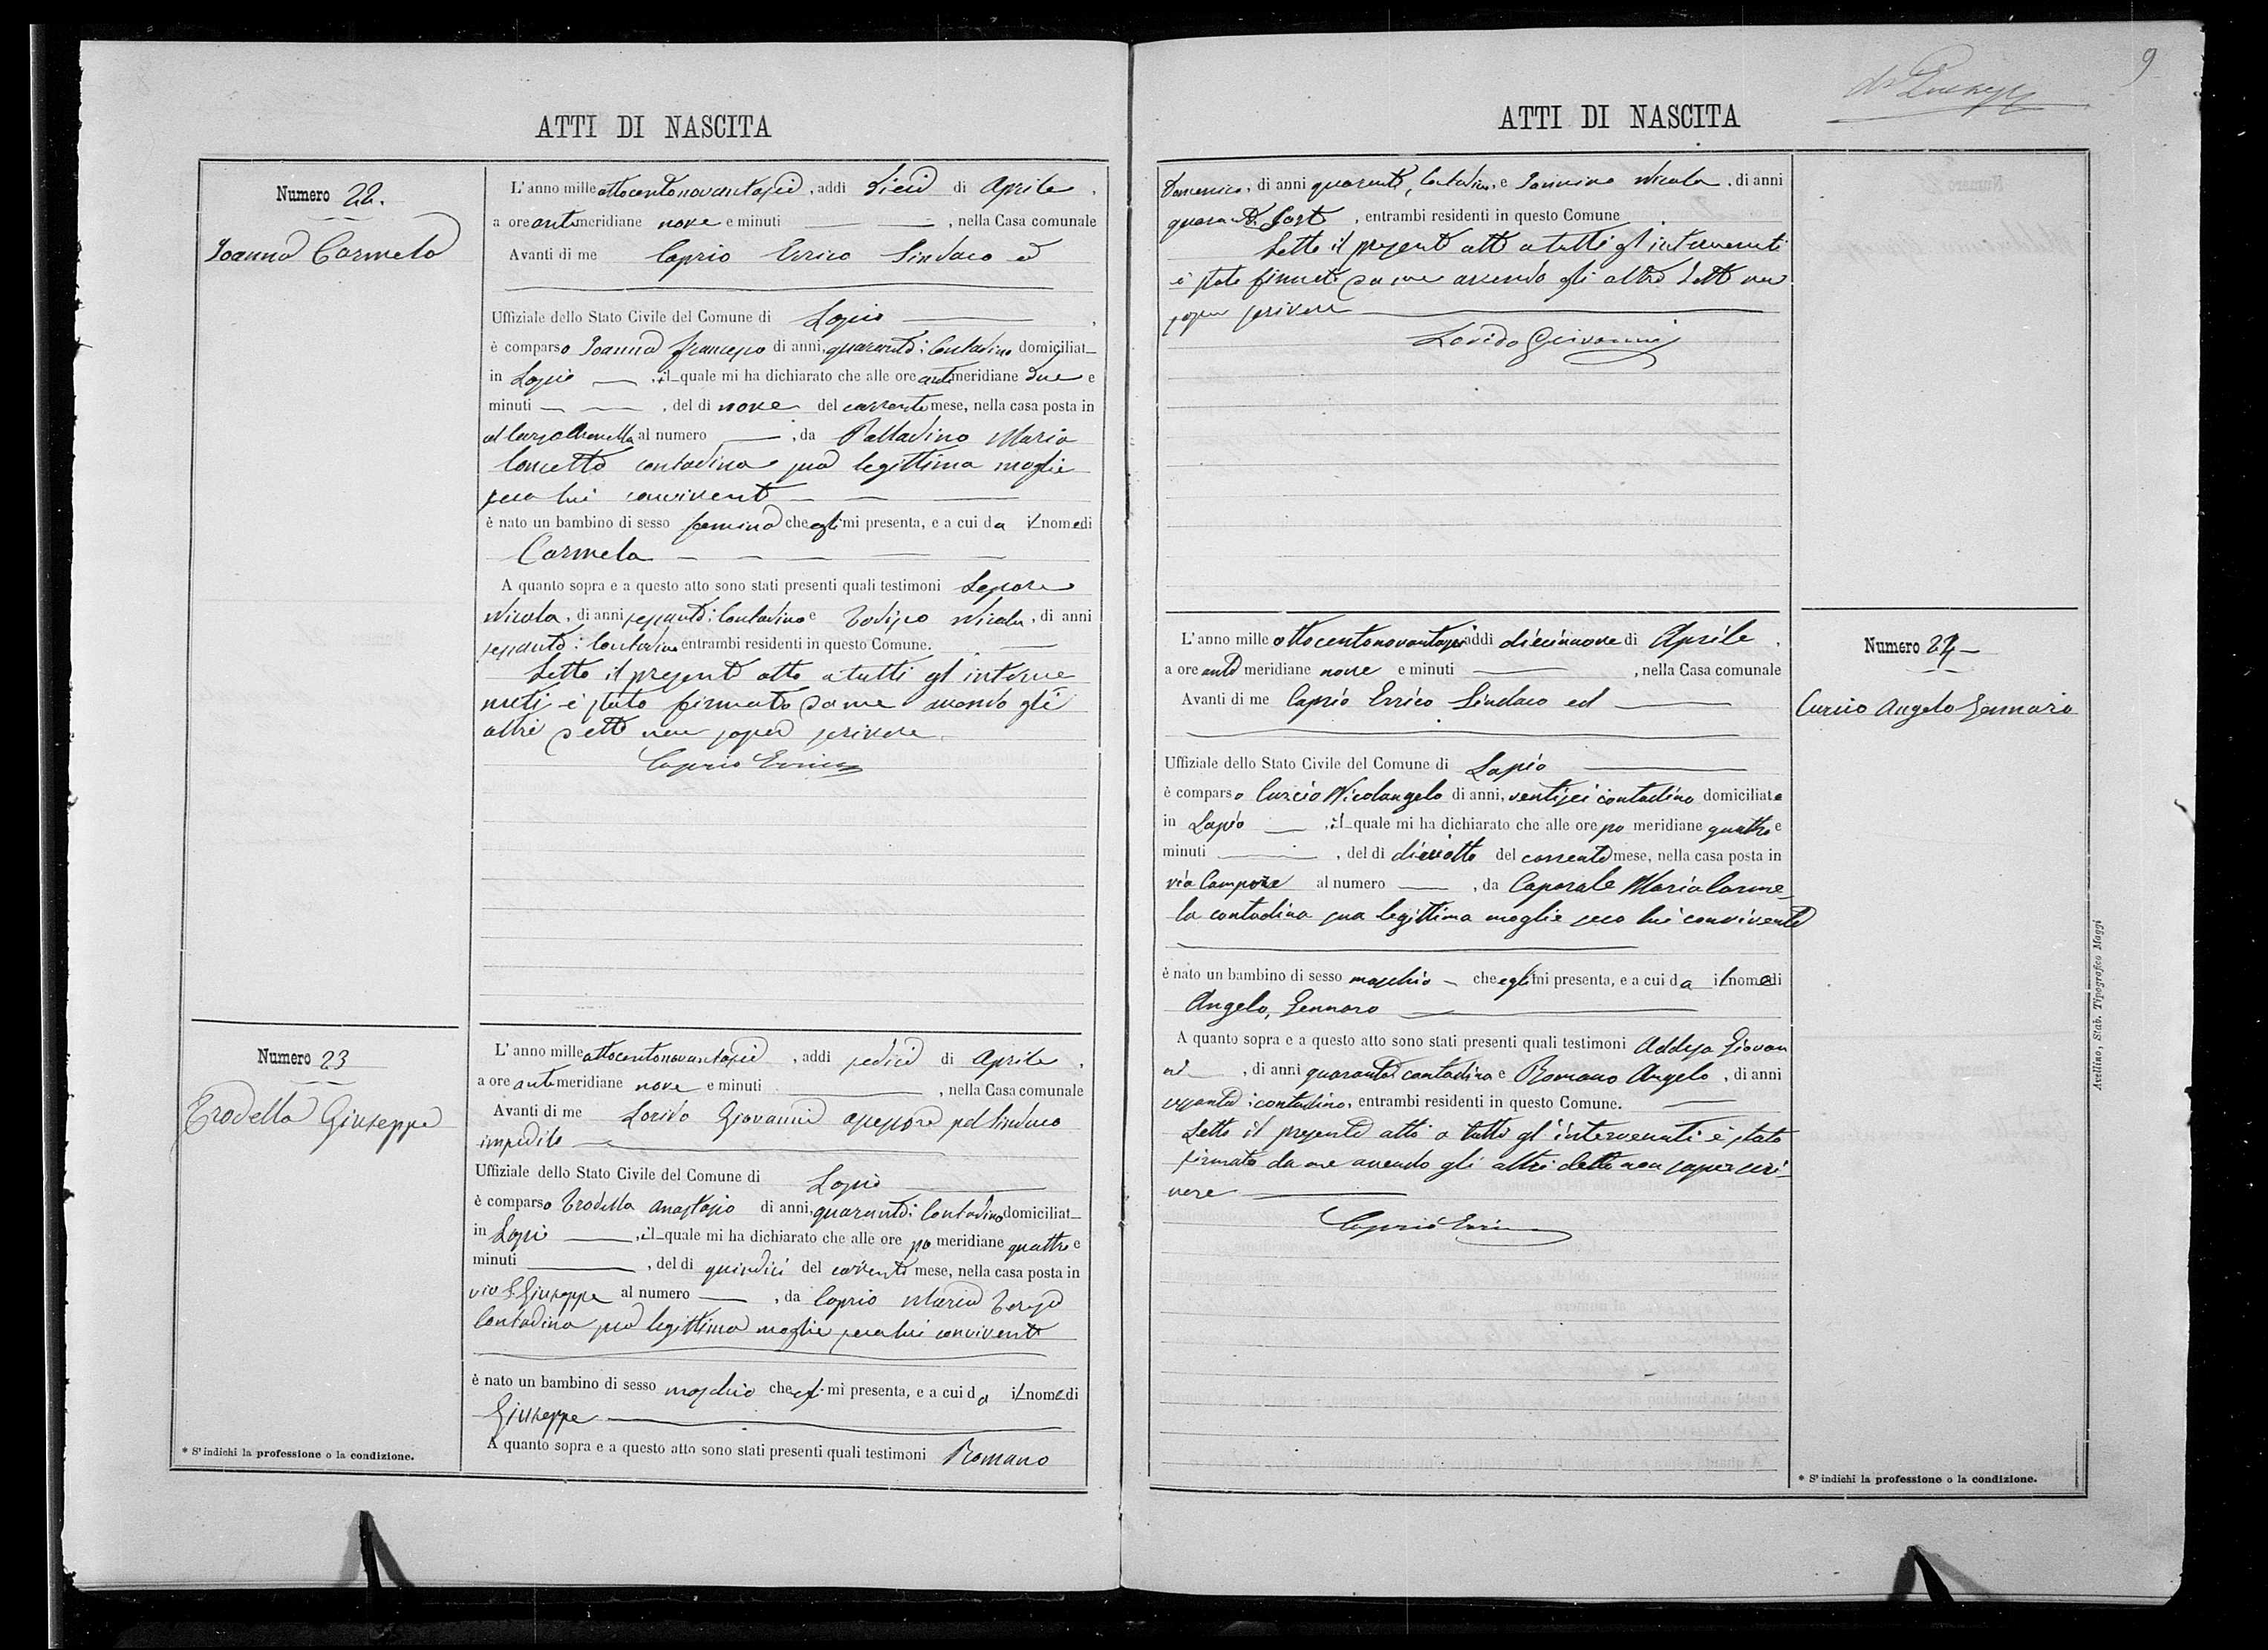 ATTI DI NASCITA
Numero 22.
Joanna Carmela
L'anno mille ottocentonovantasei, addi dieci di Aprile,
a ore antimeridiane nove e minuti, nella Casa comunale
Avanti di me Caprio Errico Sindaco ed
Uffiziale dello Stato Civile del Comune di Lapio,
è comparso Joanna Francesco di anni, quaranta: Contadino domiciliat
in Lapio, il quale mi ha dichiarato che alle ore antimeridiane due e
minuti, del dì nove del corrente mese, nella casa posta in
al largo al numero, da Palladino Maria
Concetta contadina sua legittima moglie
seco lui convivente
è nato un bambino di sesso femina che egli mi presenta, e a cui da il nome di
Carmela
A quanto sopra e a questo atto sono stati presenti quali testimoni Lepore
Nicola, di anni sessanta: Contadino e Nicola, di anni
sessanta: Contadino entrambi residenti in questo Comune.
Letto il presente atto a tutti gl'interve
nuti è stato firmato da me avendo gli
altri detto non saper scrivere.
Caprio Errico
Numero 23
Trodella Giuseppe
L'anno mille ottocentonovantasei, addi sedici di Aprile,
a ore antimeridiane nove e minuti, nella Casa comunale
Avanti di me Lorido Giovanni assessore pel Sindaco
impedito
Uffiziale dello Stato Civile del Comune di Lapio
è comparso Trodella Anastasio di anni, quaranta: Contadino domiciliat
in Lapio, il quale mi ha dichiarato che alle ore pomeridiane quattro e
minuti, del dì quindici del corrente mese, nella casa posta in
via S. Giuseppe al numero, da Caprio Maria Teresa
Contadina sua legittima moglie seco lui convivente
è nato un bambino di sesso maschio che egli mi presenta, e a cui da il nome di
Giuseppe
A quanto sopra e a questo atto sono stati presenti quali testimoni Romano
* S'indichi la professione o la condizione.
9
ATTI DI NASCITA
Domenico, di anni quaranta, Contadino, e Nicola, di anni
quaranta, entrambi residenti in questo Comune
Letto il presente atto a tutti gl'intervenuti
è stato firmato da me avendo gli altri detto non
saper scrivere
Lorido Giovanni
L'anno mille ottocentonovantasei addi diecinnove di Aprile,
a ore antimeridiane nove e minuti, nella Casa comunale
Avanti di me Caprio Errico Sindaco ed
Numero 24
Curcio Angelo Gennaro
Uffiziale dello Stato Civile del Comune di Lapio
è comparso Curcio Nicolangelo di anni, ventisei contadino domiciliato
in Lapio, il quale mi ha dichiarato che alle ore pomeridiane quattro e
minuti, del dì dieciotto del corrente mese, nella casa posta in
via Campore al numero, da Caporale Maria Carme
la contadina sua legittima moglie seco lui convivente
è nato un bambino di sesso maschio che egli mi presenta, e a cui da il nome di
Angelo, Gennaro
A quanto sopra e a questo atto sono stati presenti quali testimoni Addesa Giovan
ni, di anni quaranta contadino e Romano Angelo, di anni
sessanta: contadino, entrambi residenti in questo Comune.
Letto il presente atto a tutti gl'intervenuti è stato
firmato da me avendo gli altri detto non saper scri
vere
Caprio Errico
* S'indichi la professione o la condizione.
Avellino, Stab. Tipografico Maggi